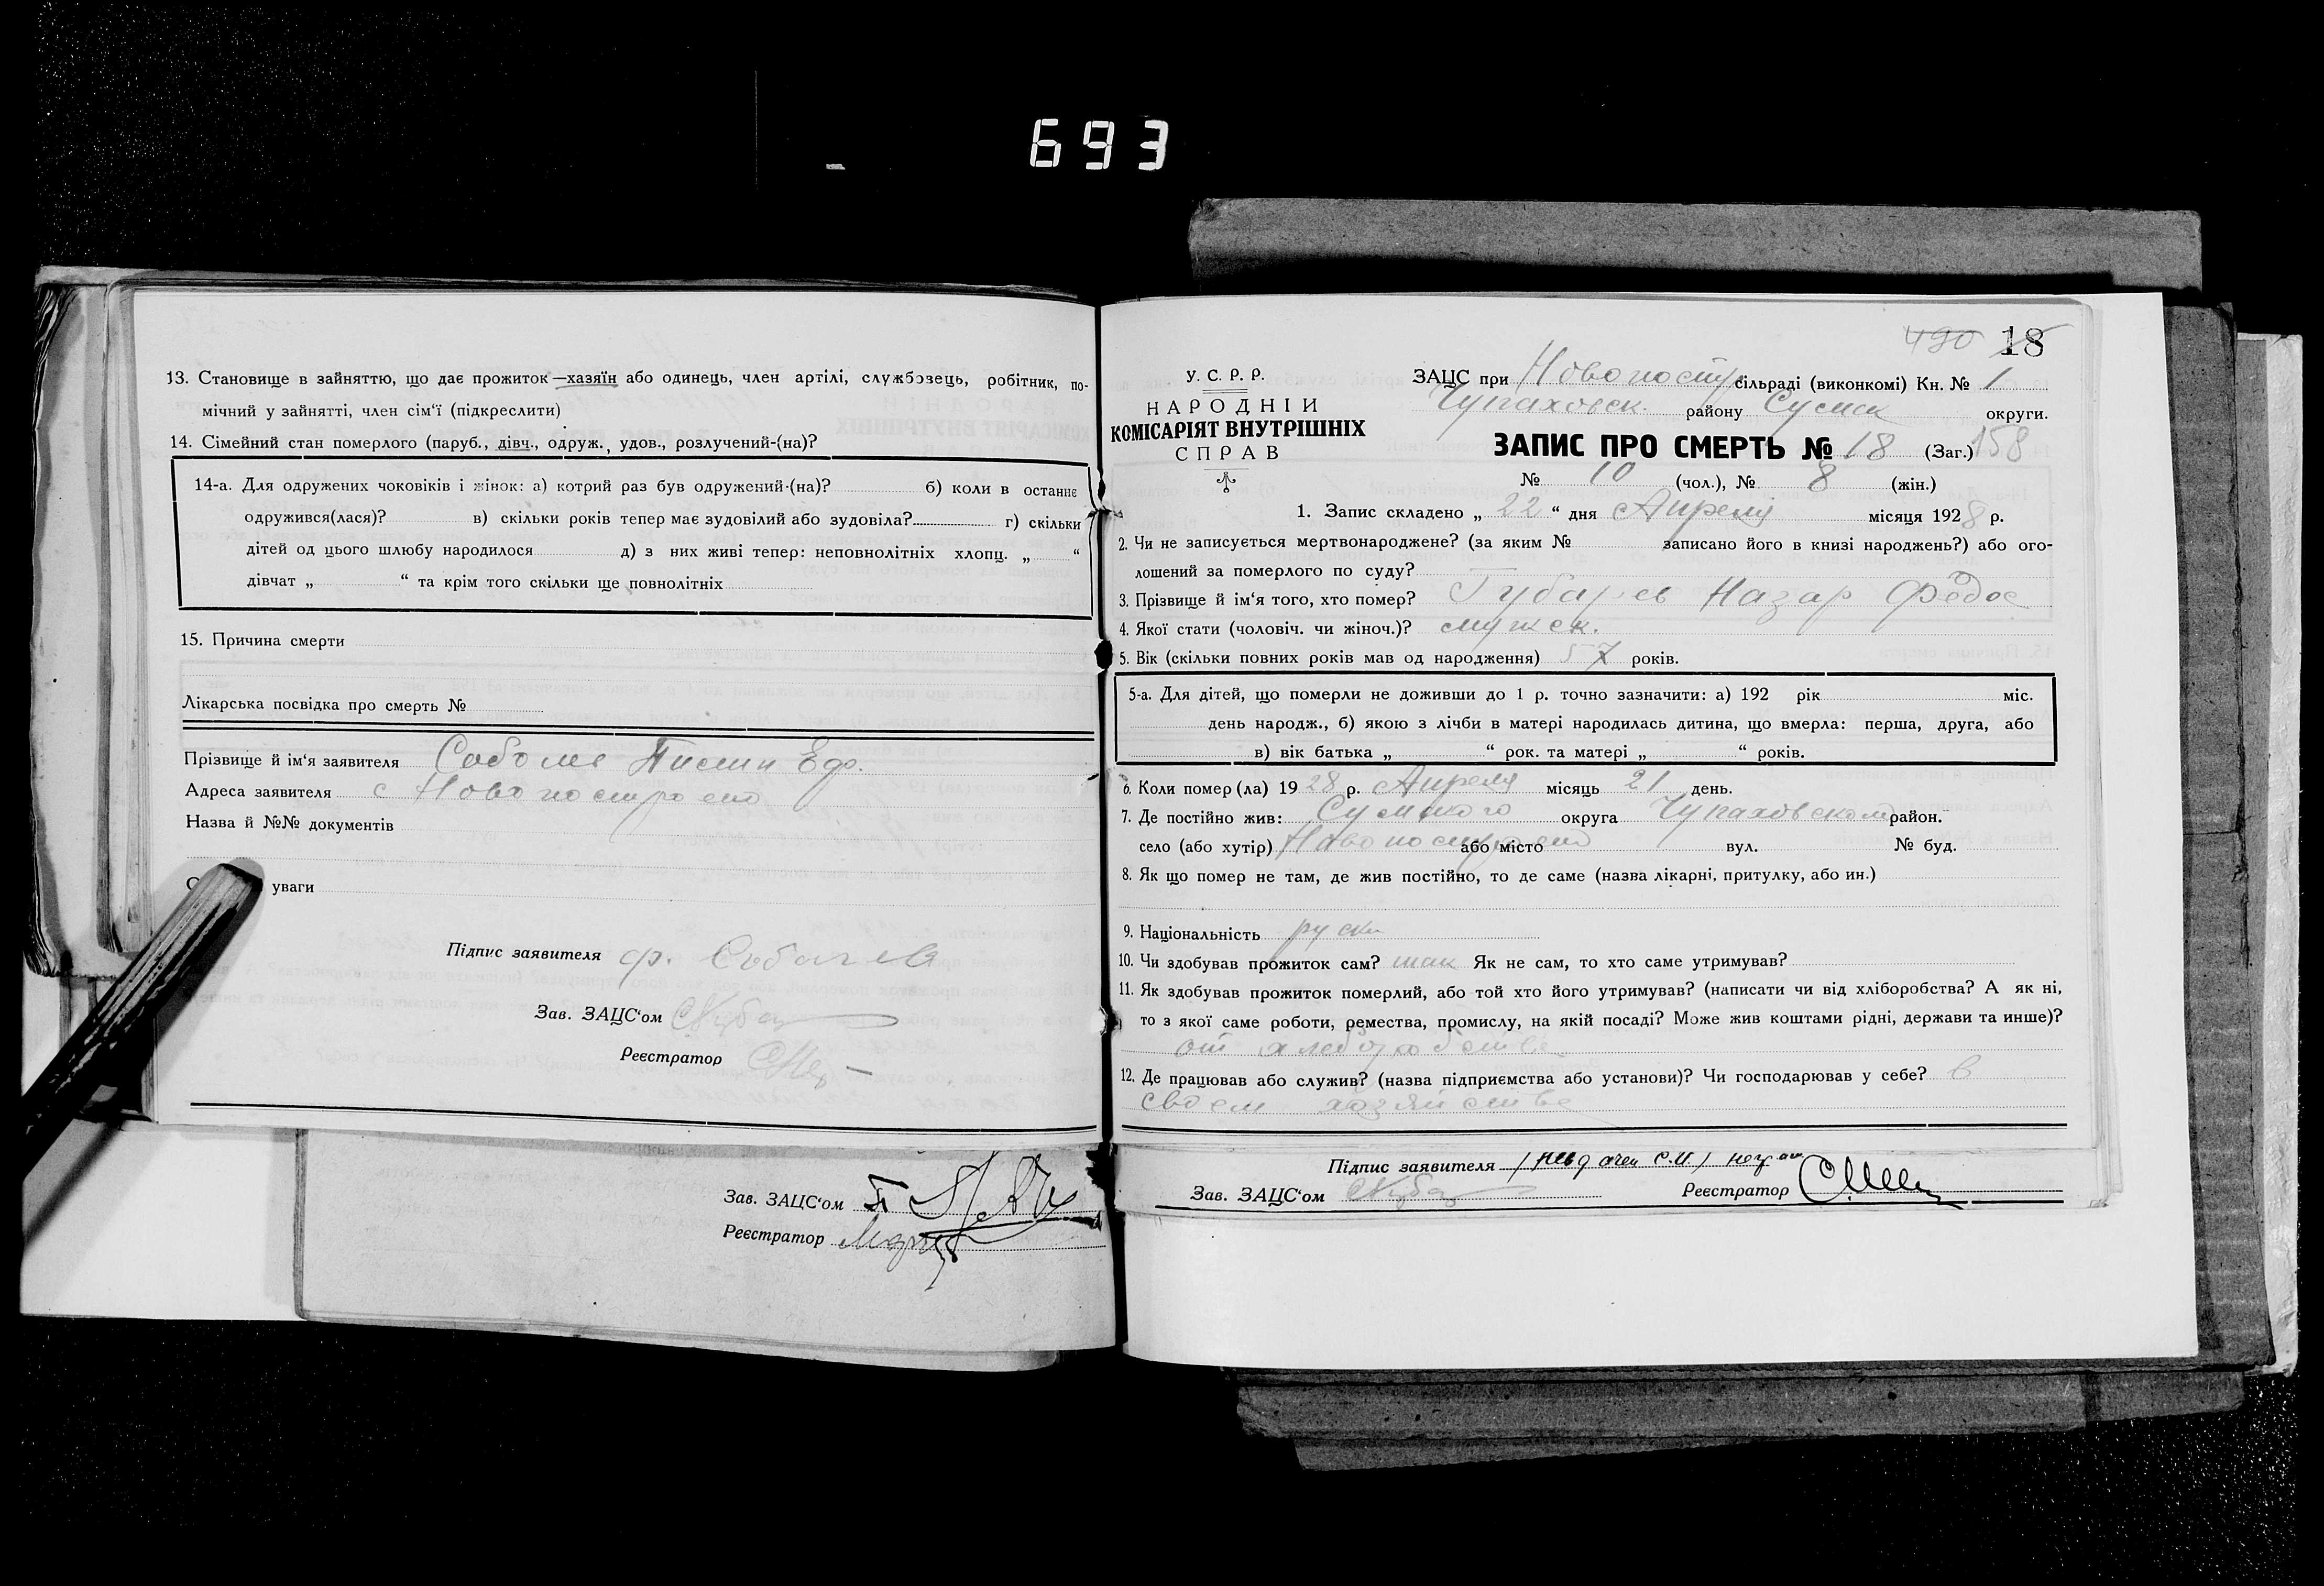 693
13. Становище в зайняттю, що дає прожиток—хазяїн або одинець, член артілі, службовець, робітник, по-
мічний у зайнятті, член сім‘ї (підкреслити)
14. Сімейний стан померлого (паруб., дівч., одруж., удов., розлучений-(на)?
14-а. Для одружених чоковіків і жінок: а) котрий раз був одружений-(на)? б) коли в останнє
одружився(лася)? в) скільки років тепер має зудовілий або зудовіла? г) скільки
дітей од цього шлюбу народилося д) з них живі тепер: неповнолітніх хлопц. „ “
дівчат „ “ та крім того скільки ще повнолітніх
15. Причина смерти
Лікарська посвідка про смерть №
Прізвище й ім‘я заявителя
Адреса заявителя с Новопостроено
Назва й №№ документів
уваги
Підпис заявителя
Зав. ЗАЦС‘ом
Реєстратор
Зав. ЗАЦС‘ом
Реєстратор
490 18
У. С. Р. Р.
НАРОДНІЙ
КОМІСАРІЯТ ВНУТРІШНІХ
СПРАВ
ЗАЦС при Новопостр сільраді (виконкомі) Кн. № 1
Чупаховск. району Сумск округи.
ЗАПИС ПРО СМЕРТЬ № 18 (Заг.) 158
№ 10 (чол.), № 8 (жін.)
1. Запис складено „ 22 “ дня Апреля місяця 1928 р.
2. Чи не записується мертвонароджене? (за яким № записано його в книзі народжень?) або ого-
лошений за померлого по суду?
3. Прізвище й ім‘я того, хто помер? Губарев Назар Федос
4. Якої стати (чоловіч. чи жіноч.)? мужск.
5. Вік (скільки повних років мав од народження) 57 років.
5-а. Для дітей, що померли не доживши до 1 р. точно зазначити: а) 192 рік міс.
день народж., б) якою з лічби в матері народилась дитина, що вмерла: перша, друга, або
в) вік батька „ “ рок. та матері „ “ років.
6. Коли помер (ла) 1928 р. Апреля місяць 21 день.
7. Де постійно жив: Сумского округа Чупаховском район.
село (або хутір) Новопостроено або місто вул. № буд.
8. Як що помер не там, де жив постійно, то де саме (назва лікарні, притулку, або ин.)
9. Національність руски
10. Чи здобував прожиток сам? так Як не сам, то хто саме утримував?
11. Як здобував прожиток померлий, або той хто його утримував? (написати чи від хліборобства? А як ні,
то з якої саме роботи, ремества, промислу, на якій посаді? Може жив коштами рідні, держави та инше)?
от хлеборобства
12. Де працював або служив? (назва підприємства або установи)? Чи господарював у себе? в
своем хозяйстве
Підпис заявителя
Зав. ЗАЦС‘ом Реєстратор